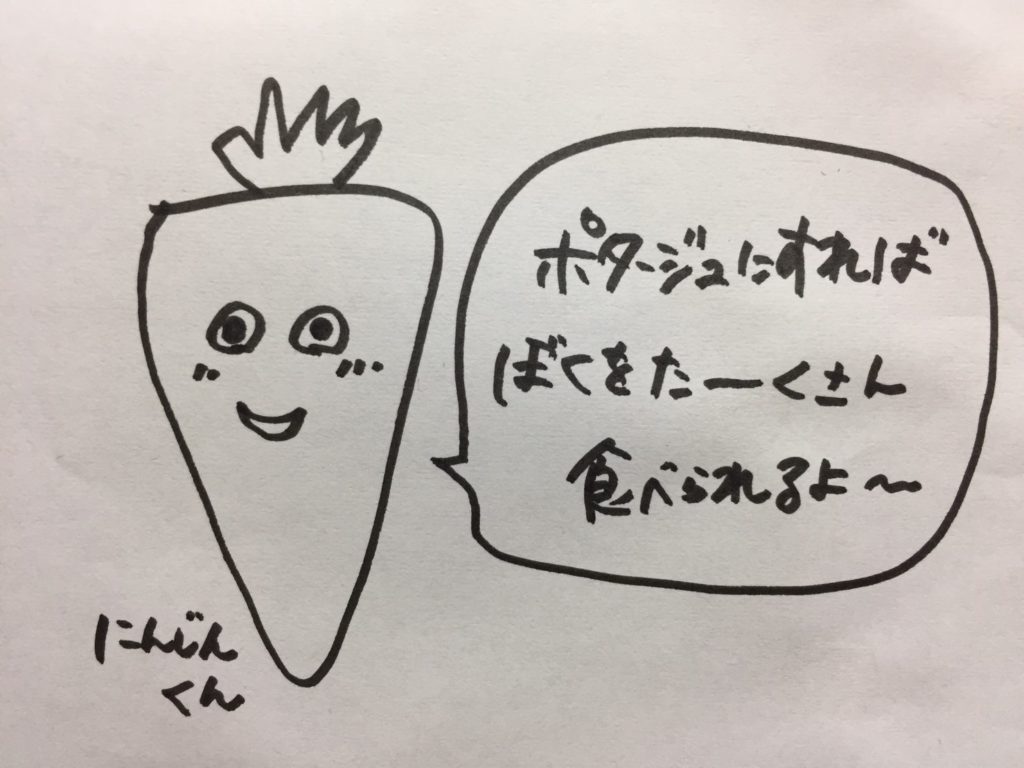 ポタージュにすれば
ぼくをたーくさん
食べられるよ〜
にんじん
くん